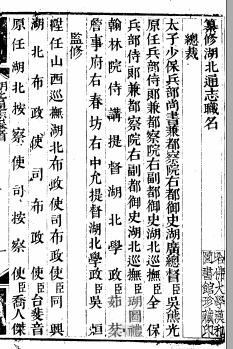 纂修湖北通志職名
總裁
太子少保兵部尚書兼都察院右都御史湖廣總督臣吳熊光
原任兵部侍郎兼都察院右副都御史湖北巡撫臣全保
兵部侍郎兼都察院右副都御史湖北巡撫臣
翰林院侍講提督湖北學政臣茹棻
詹事府右春坊右中允提督湖北學政臣吳烜
監修
陞任山西巡撫湖北布政使司布政使臣同興
湖北布政使司布政使臣台斐音
原任湖北按察使司按察使臣喬人傑
哈佛大學漢和圖書館珍藏印